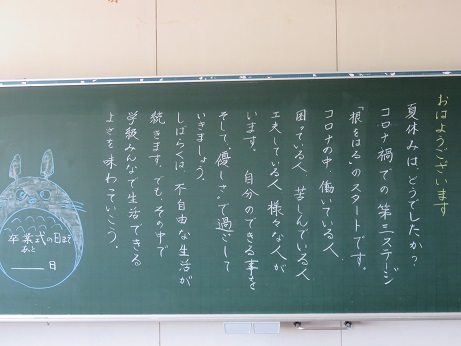 おはようございます
夏休みは、どうでしたか?
コロナ禍での第三ステージ
「根をはる」のスタートです。
コロナの中、働いている人、
困っている人、苦しんでいる人
工夫している人、様々な人が
います。自分のできる事を
そして、優しさで過ごして
いきましょう。
しばらくは、不自由な生活が
続きます。でも、その中で
学級みんなで生活できる
よさを味わっていこう。
卒業式の日まで
あと
日